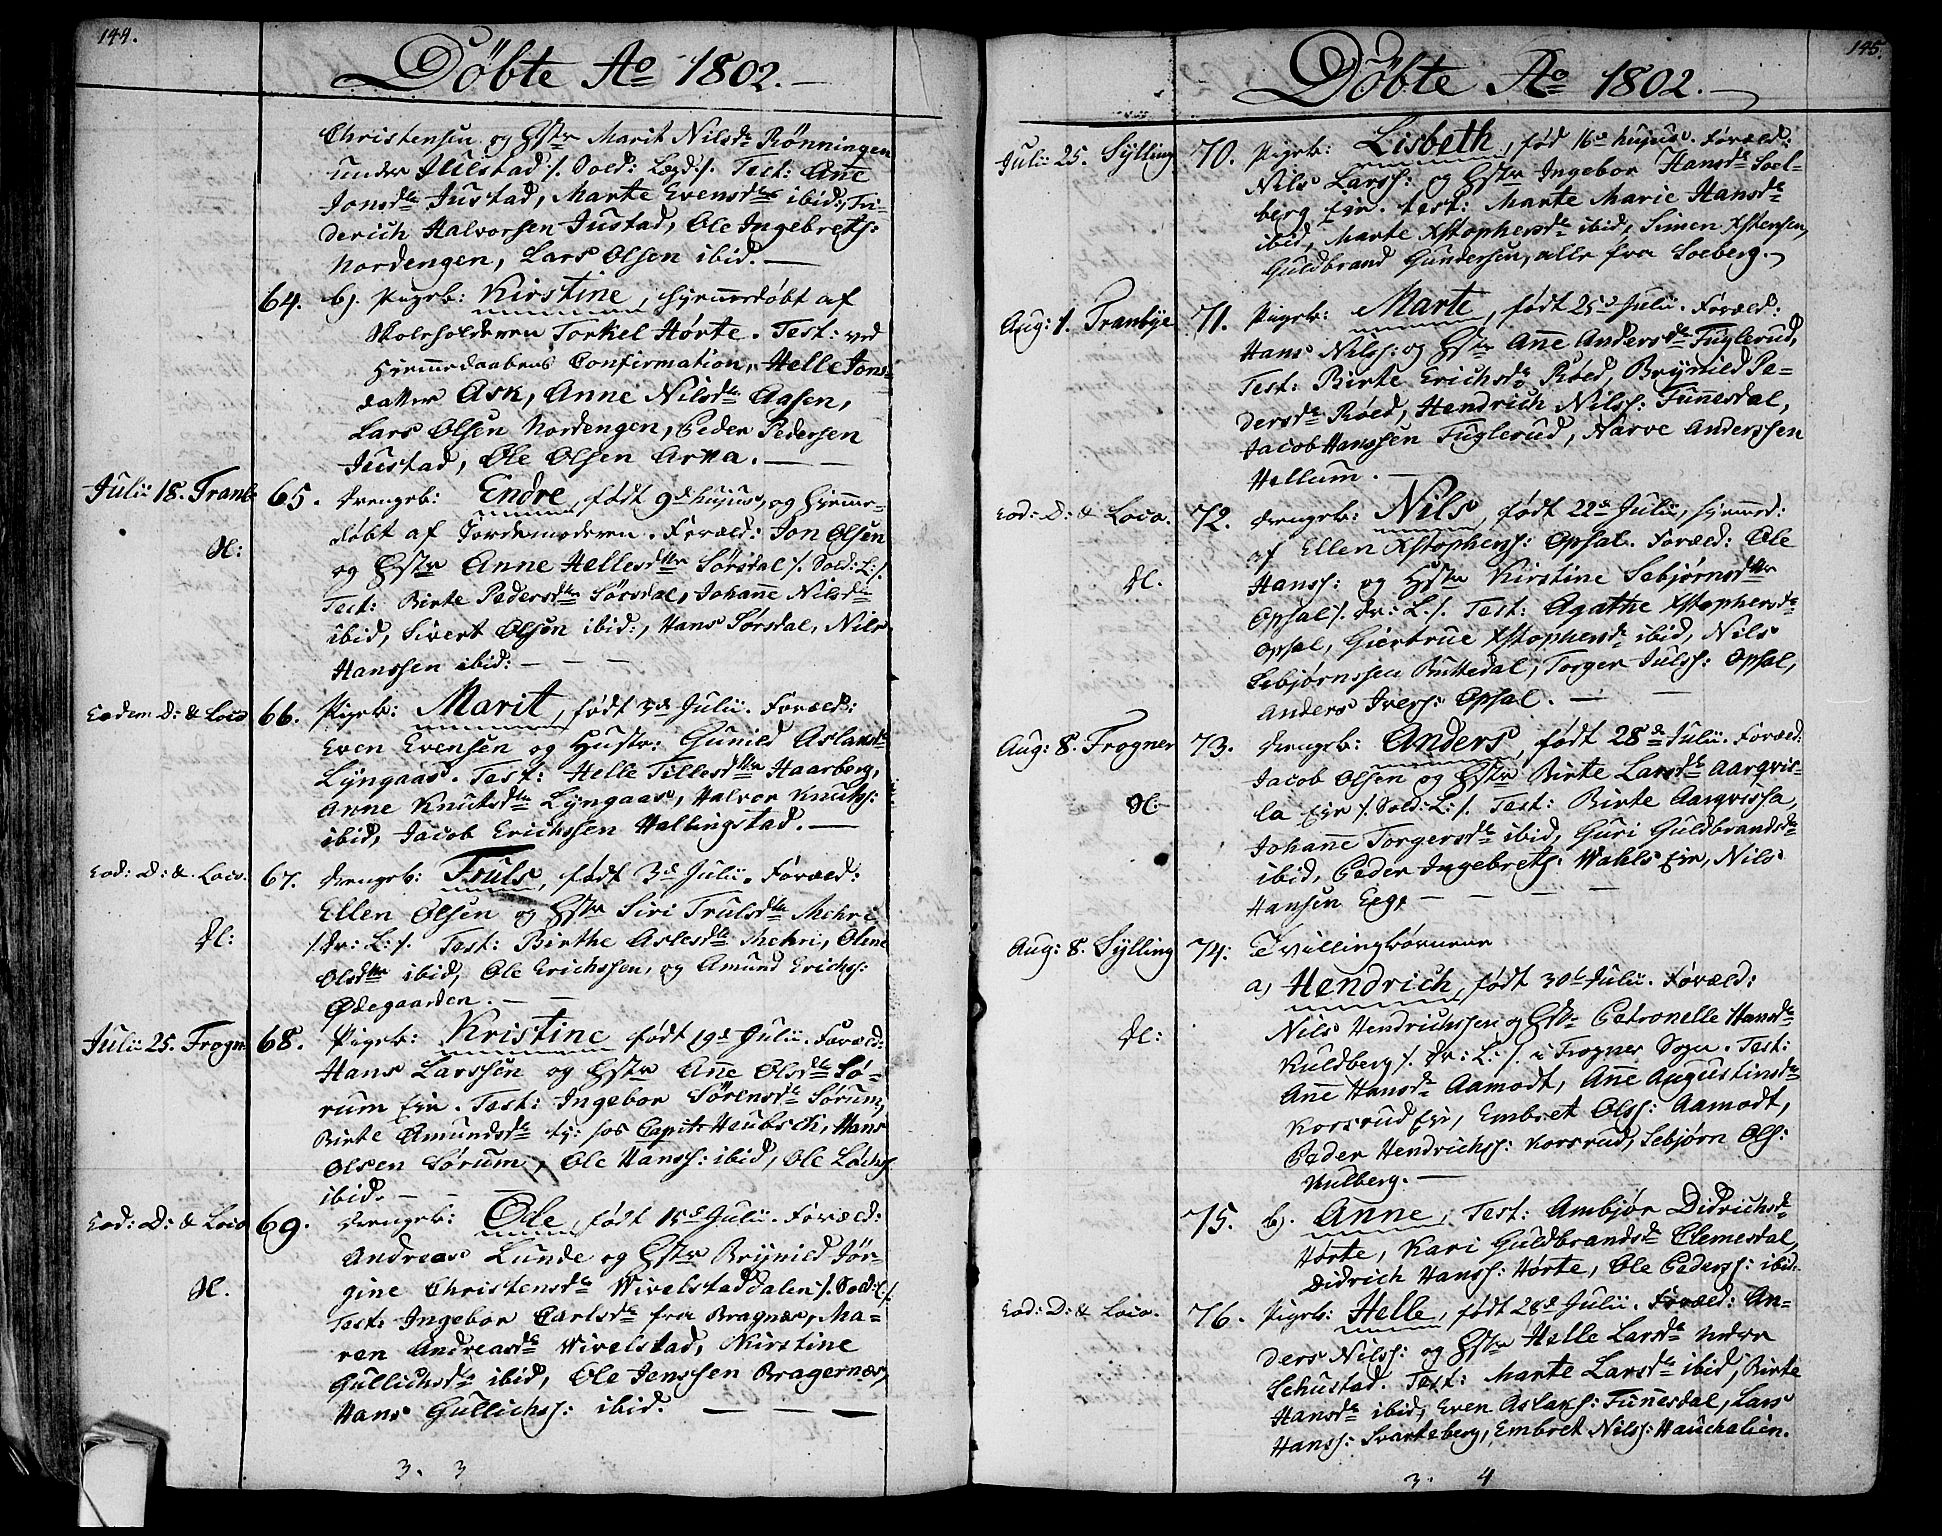 144.
Döbte Ao 1802.
Christensen og Hstr Marit Nilsdr Rønningen
under Julstad /. Sold: Legd: /. Test: Ane
Jonsdr Justad, Marte Evensdr ibid:, Di-
derich Halvorsen Justad, Ole Ingebretß:
Nordengen, Lars Olsen ibid. —
64. b). Pigeb: Kirstine, hjemmedøbt af
Skoleholderen Torkel Hørte. Test: ved
Hjemmedaabens Confirmation, Helle Jons-
datter Ask, Anne Nilsdr Aasen,
Lars Olsen Nordengen, Peder Pedersen
Justad, Ole Olsen Arna. — —
Julii 18. Tranb: 65. Drengeb: Endre, født 9de hujus, og hjemme-
døbt af Jordemoderen. Foræld: Jon Olsen
og Hstr Anne Hellesdtr Sørsdal /. Sold: L: /.
Test: Birte Pedersdtr Sørsdal, Johane Nilsdr
ibid, Sivert Olsen ibid:, Hans Sørsdal, Nils
Hanssen ibid: — — —
Eodem D: & Loco 66. Pigeb: Marit, født 3de Julii. Foræld:
Even Evensen og Hustr: Gunild Aslaksdr
Lyngaas. Test: Helle Tillesdtr Haarberg,
Anne Knutsdtr Lyngaas, Halvor Knutß:
ibid, Jacob Erichssen Hallingstad. —
Eod: D: & Loco. 67. Drengeb: Truls, født 3de Julii. Foræld:
Ellen Olsen og Hstr Siri Trulsdtr Mehri
/. Dr: L: /. Test: Birthe Aslesdtr Mehri, Olene
Olsdtr ibid, Ole Erichssen, og Amund Erichß:
Ødegaarden. — —
Julii 25. Frogn. 68. Pigeb: Kristine født 19de Julii. Foræld:
Hans Larssen og Hstr Ane Olsdtr Sø-
rum Eie. Test: Ingebor Sørensdr Sørum,
Birte Amundsdr tj: hos Capit: Heubsch, Hans
Olsen Sørum, Ole Hansß: ibid, Ole
ibid. — — —
Eod: D: & Loco 69. Drengeb: Ole, født 15de Julii. Foræld:
Andreas Lunde og Hstr Brynild Jør-
gine Christensdr Wivelstaddalen /. Sold: L: /.
Test: Ingebor Carlsdr fra Bragnæs, Ma-
ren Andreasdr Wivelstad, Kirstine
Gullichsdr ibid, Ole Jenssen Bragernæs,
Hans Gullichsß: ibid. — — —
3. 3
145.
Döbte Ao 1802.
Julii 25. Sylling 70. Pigeb: Lisbeth, fød 16de hujus. Foræld:
Nils Larsß: og Hstr Ingebor Hansdr Soel-
berg Eie. Test: Marte Marie Hansdr
ibid, Marte Xstophersdr ibid, Simen Xstensen,
Guldbrand Gundersen, alle fra Soeberg.
Aug: 1. Tranbye 71. Pigeb: Marte, født 25de Julii. Foræld:
Hans Nilsß: og Hstr Ane Andersdr Fuglerud,
Test: Birte Erichsdr Røed, Brynild Pe-
dersdr Røed, Hendrich Nilsß: Funesdal,
Jacob Hanssen Fuglerud, Narve Anderssen
Hellum. —
Eod: D: & Loco. 72. Drengeb: Nils, født 22de Julii, hjemmed:
af Ellen Xstophersß: Opsal. Foræld: Ole
Hansß: og Hstr Kirstine Sebjørnsdtr
Opsal /. Dr: L: /. Test: Agathe Xstophersdr
Opsal, Giertrue Xstophersdr ibid, Nils
Sebjørnssen Buttedal, Torger Julsß: Opsal,
Anders Iversß: Opsal. — —
Aug: 8. Frogner 73. Drengeb: Anders, født 28de Julii. Foræld:
Jacob Olsen og Hstr Birte Larsdr Aarqvis-
la Eie /. Sold: L: /. Test: Birte Aarqvissla,
Johane Torgersdr ibid, Guri Guldbrandsdr
ibid, Peder Ingebretß: Wahls Eie, Nils
Hansen Eeg, — — — —
Aug: 8. Sylling 74. Tvillingbørnene
a) Hendrich, født 30te Julii. Foræld:
Nils Hendrichssen og Hstr Petronelle Hansdr
Kuldberg /. Dr: L: /. i Frogner Sogn. Test:
Ane Hansdr Aamodt, Ane Augustinsdr
Korsrud Eie, Embret Olsß: Aamodt,
Peder Hendrichsß: Korsrud, Sebjørn Olsß:
Kulberg. —
75. b). Anne, Test: Ambjør Didrichsdr
Hørte, Kari Guldbrandsdr Clemesdal,
Didrich Hansß: Hørte, Ole Pedersß: ibid:
Eod: D: & Loco. 76. Pigeb: Helle, født 28de Julii. Foræld: An-
ders Nilsß: og Hstr Helle Larsdr nedre
Schustad. Test: Marte Larsdr ibid, Birte
Hansdr ibid, Even Aslaksß: Funesdal, Lars
Hansß: Svarteberg, Embret Nilsß: Hauchelien.
3. 4